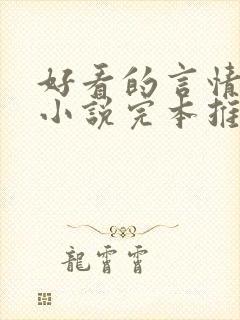 好看的言情
小說完本推
龍霄霄